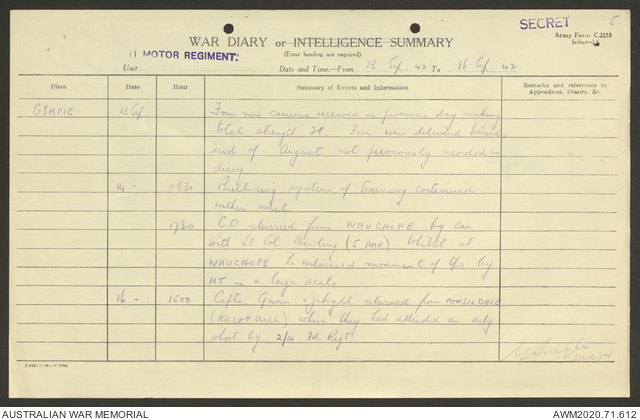 SECRET 5.
WAR DIARY or INTELLIGENCE SUMMARY
Army Form C.2118
(Erase heading not required).
11 MOTOR REGIMENT.
Unit
Date and Time—From 13 Sep. 42 To 16 Sep. 42.
Place Date Hour Summary of Events and Information Remarks and references to Appendices, Diaries, &c
GYMPIE 13 Sep. Four new carriers received on previous day making
total strength 24. Five were delivered towards
end of August not previously recorded in
diary
14 - 0830 Bull ring system of training continued
within unit
1730 CO returned from WAUCHOPE by car
with Lt. Col. Dowling (5 AMR) Whilst at
WAUCHOPE he witnessed movement of tps by
MT on a large scale
16 - 1500 Capts Gunn & Jekyll returned from MONSILDALE
(KILCOY area) where they had attended an arty
shoot by 2/14 Fd. Regt
Major
AUSTRALIAN WAR MEMORIAL
AWM2020.71.612